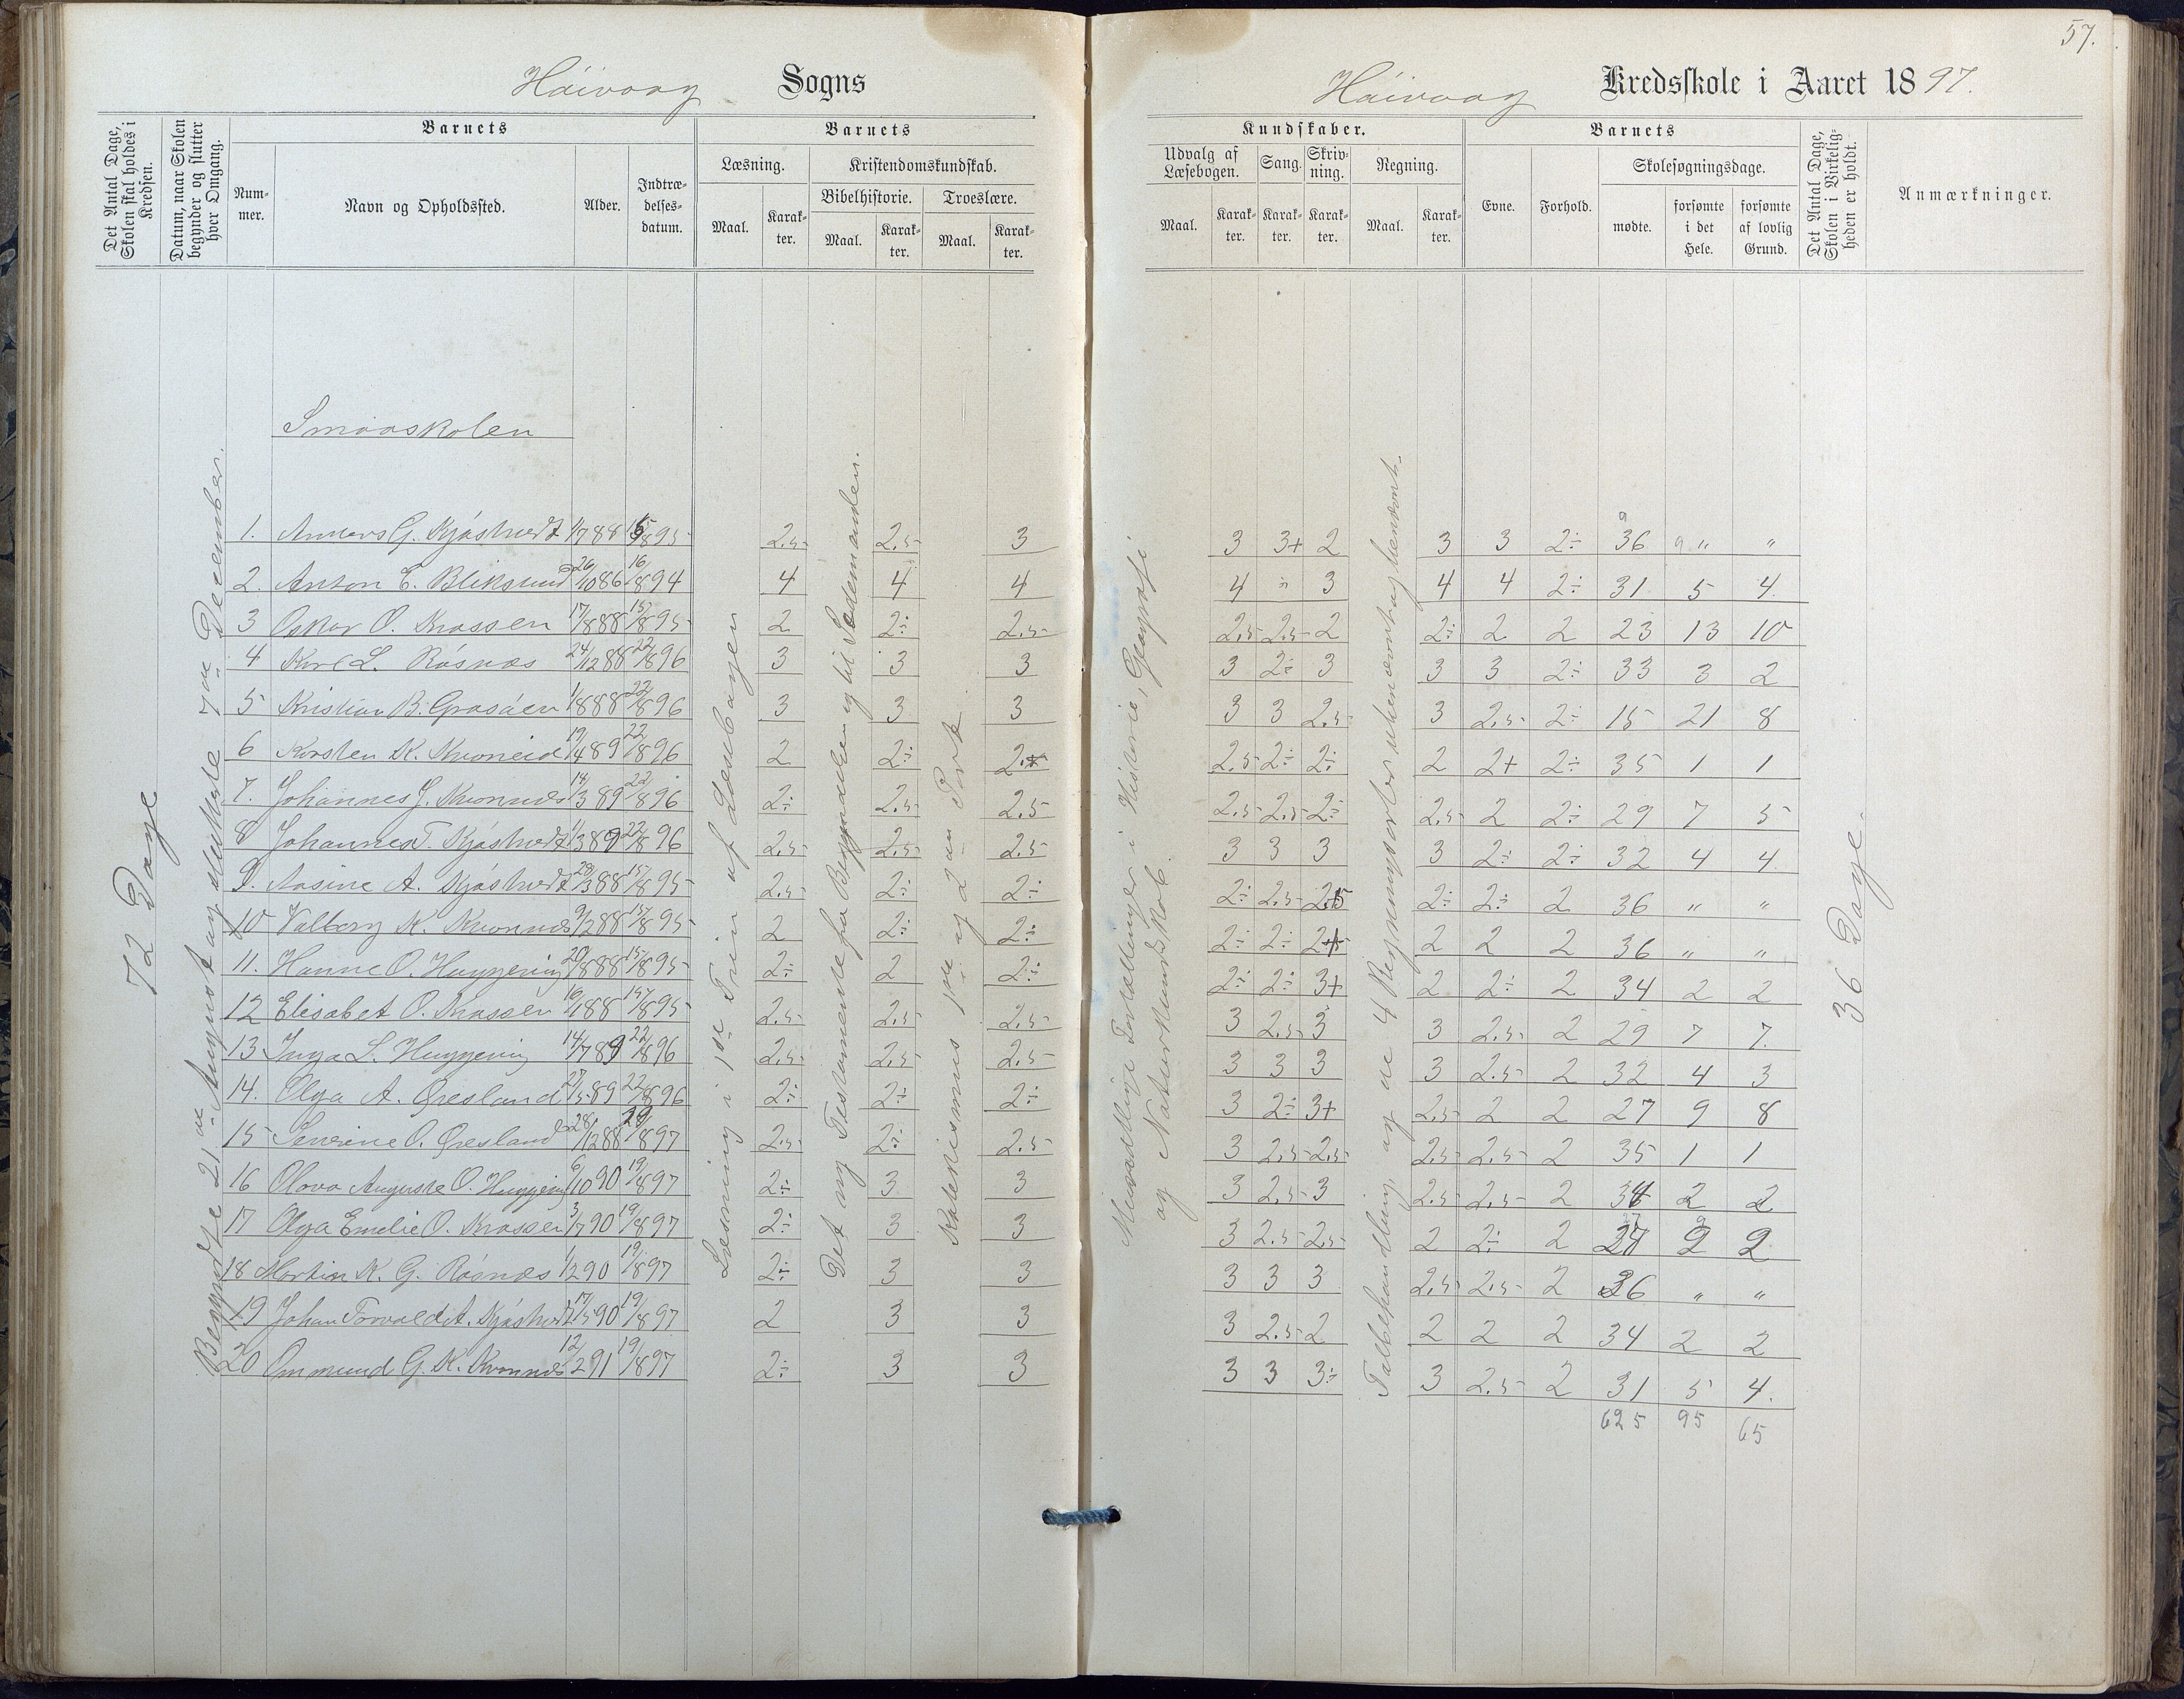 57.
Háivaag Sogns
Háivaag Kredsskole i Aaret 1897.
Det Antal Dage, Skolen skal holdes i Kredsen.
Datum, naar Skolen begynder og slutter hver Omgang.
Barnets
Num-mer.
Navn og Opholdssted.
Alder.
Indtræ-delses-datum.
Barnets
Læsning.
Maal.
Karak-ter.
Kristendomskundskab.
Bibelhistorie.
Maal.
Karak-ter.
Troeslære.
Maal.
Karak-ter.
Kundskaber.
Udvalg af Læsebogen.
Maal.
Karak-ter.
Sang.
Karak-ter.
Skriv-ning.
Karak-ter.
Regning.
Maal.
Karak-ter.
Barnets
Evne.
Forhold.
Skolesøgningsdage.
mødte.
forsømte i det Hele.
forsømte af lovlig Grund.
Det Antal Dage, Skolen i Virkelig-heden er holdt.
Anmærkninger.
72 Dage
Begyndte 21de August og sluttede 7de December.
Læsning i 1ste Trin af Læsebogen
Det nye Testamente fra Begyndelsen og til Sædemanden.
Katekismus 1ste og 2den Part
Mundtlige Fortællinger i Historie, Geografi
og Naturkundskab.
Talbehandling og de 4 Regningsarter
36 Dage.
Smaaskolen
1. Anners G. Kjøstvedt 1/7 88 15/8 95 2.5 2.5 3 3 3+ 2 3 3 2÷ 36 " "
2. Anton E. Bliksund 26/10 86 16/8 94 4 4 4 4 " 3 4 4 2÷ 31 5 4.
3 Oskar O. Krossen 17/8 88 15/8 95 2 2÷ 2.5 2.5 2.5 2 2÷ 2 2 23 13 10
4 Karl L. Råsnæs 24/12 88 22/8 96 3 3 3 3 2÷ 3 3 3 2÷ 33 3 2
5 Kristian B. Grosåen 1/8 88 22/8 96 3 3 3 3 3 2.5 3 2.5 2÷ 15 21 8
6 Karsten K. Kvoneid 19/4 89 22/8 96 2 2÷ 2.5 2÷ 2÷ 2 2+ 2÷ 35 1 1
7. Johannes J. Kvonnes 14/3 89 22/8 96 2÷ 2.5 2.5 2.5 2.5 2÷ 2.5 2 2÷ 29 7 5
8 Johannes T. Kjøstvedt 1/3 89 22/8 96 2.5 2.5 2.5 3 3 3 3 2÷ 2÷ 32 4 4
9. Aasine A. Kjøstvedt 29/3 88 15/8 95 2.5 2÷ 2÷ 2÷ 2.5 2.5 2÷ 2÷ 2 36 " "
10 Valborg K. Kvonnes 9/2 88 15/8 95 2 2÷ 2÷ 2÷ 2÷ 2+ 2 2 2 36 " "
11. Hanne O. Huggening 20/8 88 15/8 95 2÷ 2 2÷ 2÷ 2÷ 3+ 2 2÷ 2 34 2 2
12 Elisabet O. Krossen 16/1 88 15/8 95 2.5 2.5 2.5 3 2.5 3 3 2.5 2 29 7 7.
13 Inga L. Huggening 14/7 89 22/8 96 2.5 2.5 2.5 3 3 3 3 2.5 2 32 4 3
14. Olga A. Øresland 27/5 89 22/8 96 2÷ 2÷ 2÷ 3 2÷ 3+ 2.5 2 2 27 9 8
15 Severine O. Øresland 28/12 88 8 97 2.5 2÷ 2.5 3 2.5 2.5 2.5 2.5 2 35 1 1
16 Olava Auguste O. Huggening 6/10 90 19/8 97 2÷ 3 3 3 2.5 3 2.5 2.5 2 34 2 2
17 Olga Emelie O. Krossen 3/7 90 19/8 97 2÷ 3 3 3 2.5 2.5 2 2÷ 2 27 9 9
18 Martin K. G. Råsnæs 1/2 90 19/8 97 2÷ 3 3 3 3 3 2.5 2.5 2 36 " "
19 Johan Torvald A. Kjøstvedt 17/5 90 19/8 97 2 3 3 3 2.5 2 2 2 2 34 2 2
20 Ommund G. K. Kvonnes 12/2 91 19/8 97 2÷ 3 3 3 3 3÷ 3 2.5 2 31 5 4.
625 95 65